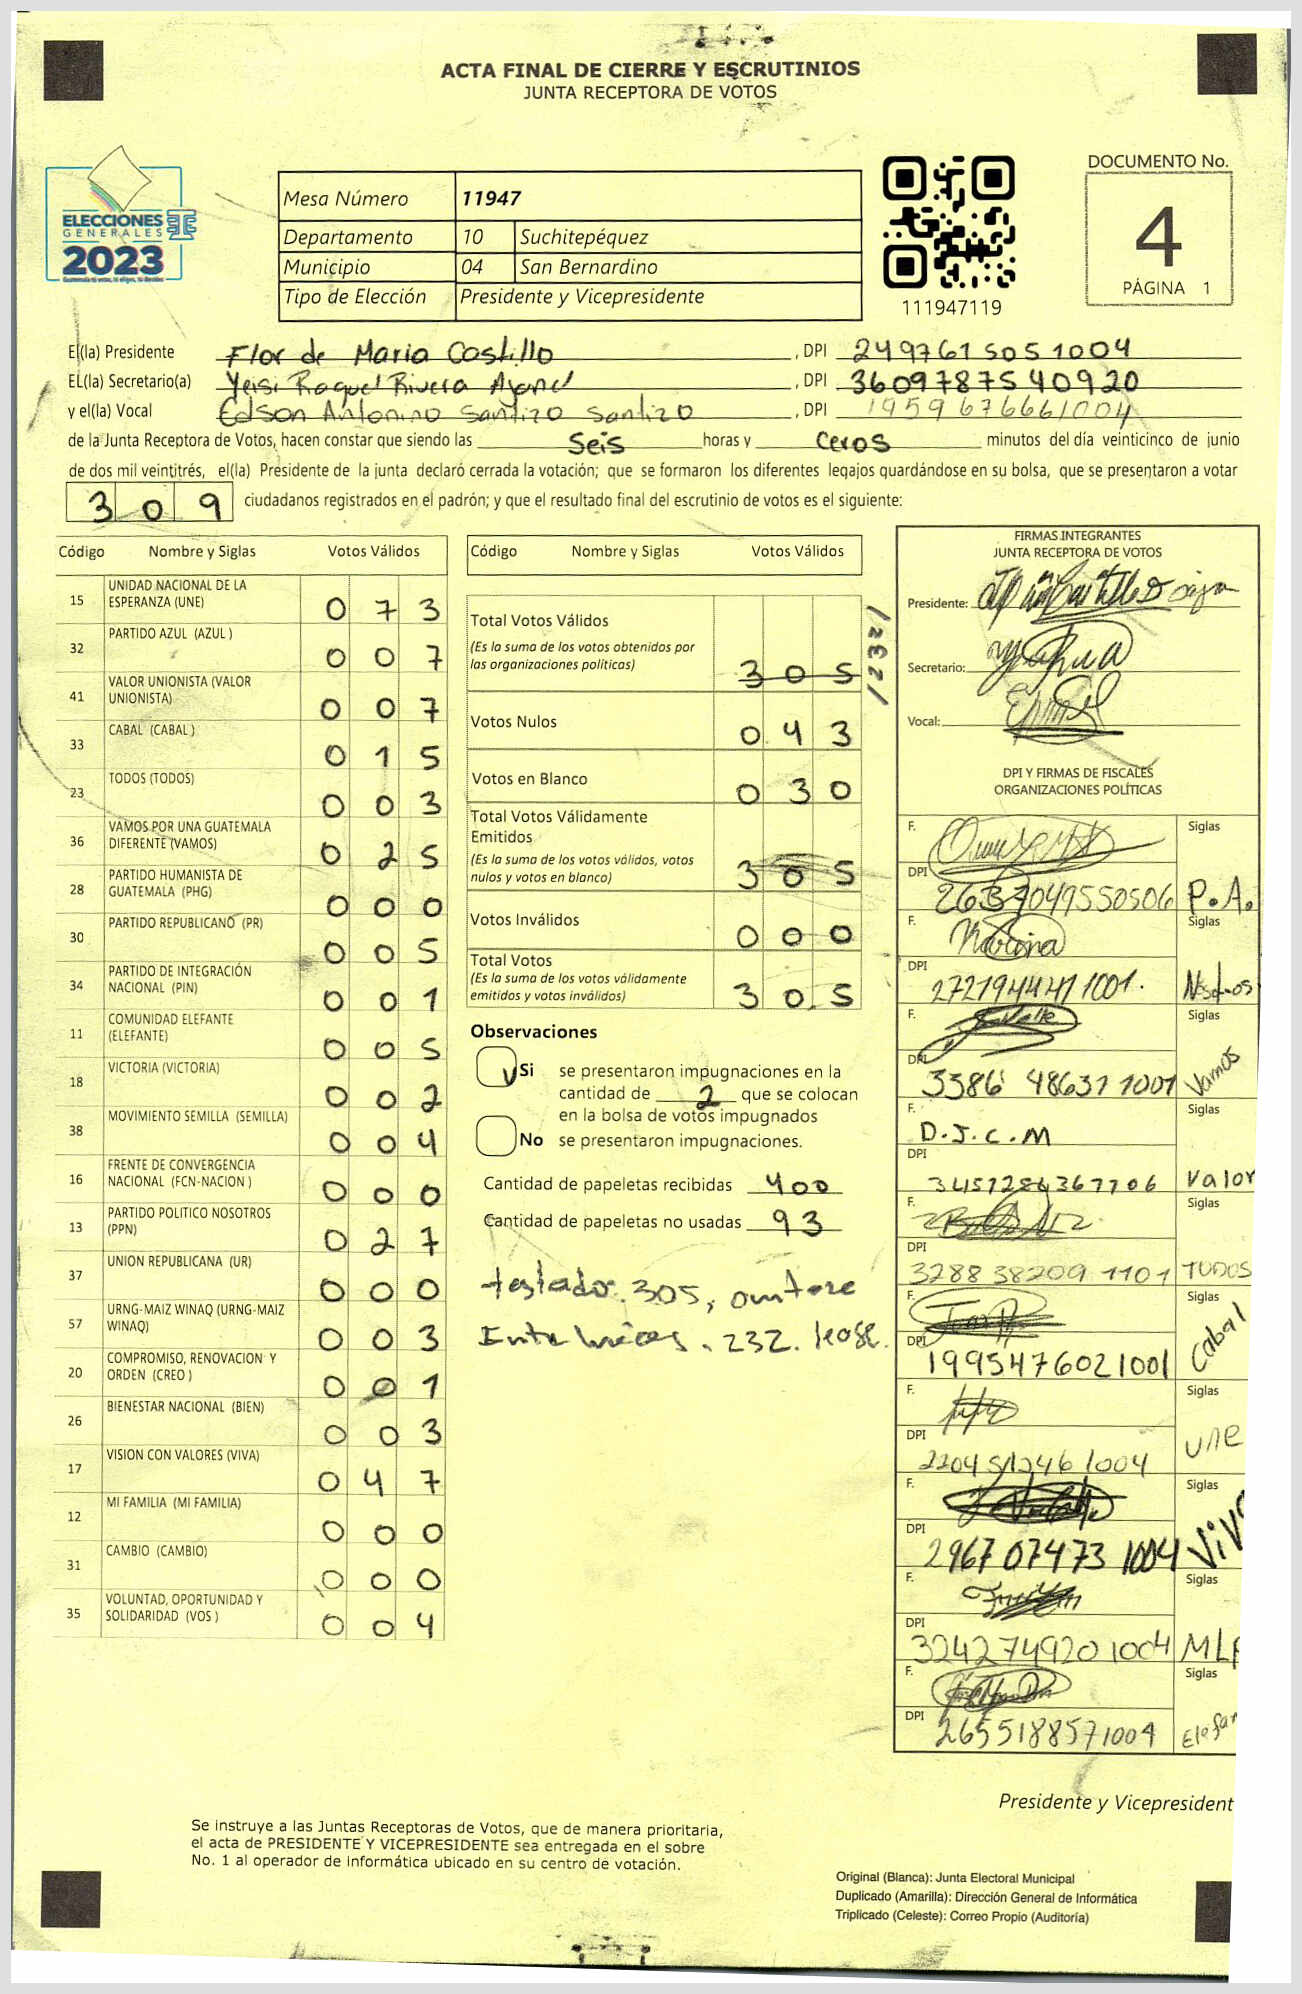 ACTA FINAL DE CIERRE Y ESCRUTINIOS
JUNTA RECEPTORA DE VOTOS
ELECCIONES
GENERALES
2023
Mesa Número 11947
Departamento 10 Suchitepéquez
Municipio 04 San Bernardino
Tipo de Elección Presidente y Vicepresidente
111947119
DOCUMENTO No.
4
PÁGINA 1
El(la) Presidente Flor de Maria Castillo , DPI 2497615051004
EL(la) Secretario(a) Yeisi Raquel Rivera , DPI 3609787540920
y el(la) Vocal Edson Antonino Santizo Santizo , DPI 1959676661004
de la Junta Receptora de Votos, hacen constar que siendo las Seis horas y Ceros minutos del día veinticinco de junio
de dos mil veintitrés, el(la) Presidente de la junta declaró cerrada la votación; que se formaron los diferentes legajos quardándose en su bolsa, que se presentaron a votar
309 ciudadanos registrados en el padrón; y que el resultado final del escrutinio de votos es el siguiente:
Código Nombre y Siglas Votos Válidos
15 UNIDAD NACIONAL DE LA ESPERANZA (UNE) 073
32 PARTIDO AZUL (AZUL ) 007
41 VALOR UNIONISTA (VALOR UNIONISTA) 007
33 CABAL (CABAL ) 015
23 TODOS (TODOS) 003
36 VAMOS POR UNA GUATEMALA DIFERENTE (VAMOS) 025
28 PARTIDO HUMANISTA DE GUATEMALA (PHG) 000
30 PARTIDO REPUBLICANO (PR) 005
34 PARTIDO DE INTEGRACIÓN NACIONAL (PIN) 001
11 COMUNIDAD ELEFANTE (ELEFANTE) 005
18 VICTORIA (VICTORIA) 002
38 MOVIMIENTO SEMILLA (SEMILLA) 004
16 FRENTE DE CONVERGENCIA NACIONAL (FCN-NACION ) 000
13 PARTIDO POLITICO NOSOTROS (PPN) 027
37 UNION REPUBLICANA (UR) 000
57 URNG-MAIZ WINAQ (URNG-MAIZ WINAQ) 003
20 COMPROMISO, RENOVACION Y ORDEN (CREO ) 001
26 BIENESTAR NACIONAL (BIEN) 003
17 VISION CON VALORES (VIVA) 047
12 MI FAMILIA (MI FAMILIA) 000
31 CAMBIO (CAMBIO) 000
35 VOLUNTAD, OPORTUNIDAD Y SOLIDARIDAD (VOS ) 004
Código Nombre y Siglas Votos Válidos
Total Votos Válidos 305 /232/
(Es la suma de los votos obtenidos por
las organizaciones políticas)
Votos Nulos 043
Votos en Blanco 030
Total Votos Válidamente
Emitidos 305
(Es la suma de los votos válidos, votos
nulos y votos en blanco)
Votos Inválidos 000
Total Votos 305
(Es la suma de los votos válidamente
emitidos y votos inválidos)
Observaciones
Si se presentaron impugnaciones en la
cantidad de 2 que se colocan
en la bolsa de votos impugnados
No se presentaron impugnaciones.
Cantidad de papeletas recibidas 400
Cantidad de papeletas no usadas 93
testado. 305, omitase
Entre lineas. 232. lease.
FIRMAS INTEGRANTES
JUNTA RECEPTORA DE VOTOS
Presidente:
Secretario:
Vocal:
DPI Y FIRMAS DE FISCALES
ORGANIZACIONES POLÍTICAS
F. Siglas
DPI 2637049550506 P.A.
F. Siglas
DPI 2721944471001.
F. Siglas
DPI 3386 48637 1001 Vamos
F. D.J.C.M Siglas
DPI 3457284367706 Valor
F. Siglas
DPI 3288 38209 1101 TODOS
F. Siglas
DPI 1995476021001 Cabal
F. Siglas
DPI 2204512461004 une
F. Siglas
DPI 2967 07473 1004
F. Siglas
DPI 3242749201004
F. Siglas
DPI 2655188571004
Presidente y Vicepresident
Se instruye a las Juntas Receptoras de Votos, que de manera prioritaria,
el acta de PRESIDENTE Y VICEPRESIDENTE sea entregada en el sobre
No. 1 al operador de informática ubicado en su centro de votación.
Original (Blanca): Junta Electoral Municipal
Duplicado (Amarilla): Dirección General de Informática
Triplicado (Celeste): Correo Propio (Auditoría)